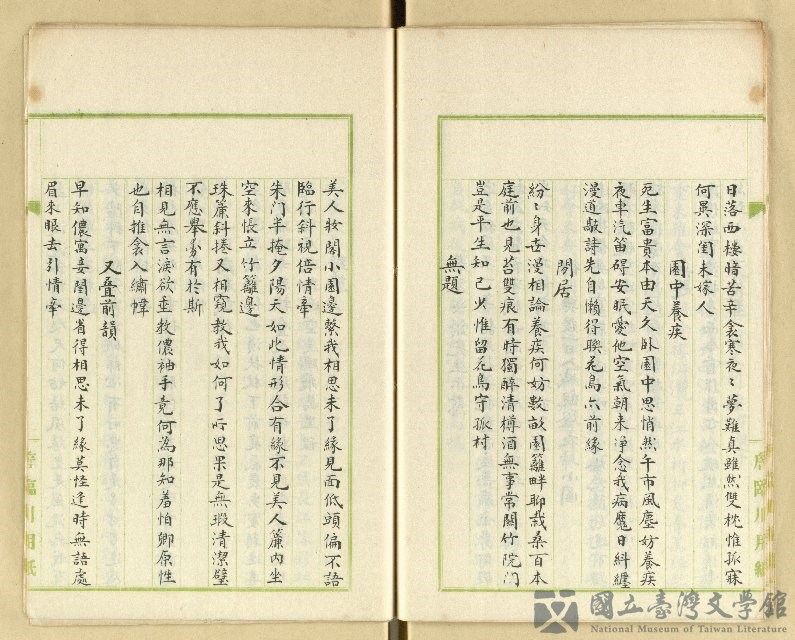 日落西樓暗苦辛衾寒夜〻夢難真雖然雙枕惟孤寐
何異深閨未嫁人
園中養疾
死生富貴本由天久臥園中思悄然午市風塵妨養疾
夜車汽笛碍安眠愛他空氣朝來淨念我病魔日糾纏
漫道敲詩先自懶得聯花鳥亦前緣
閒居
紛〻身世漫相論養疾何妨數故園籬畔聊栽桑百本
庭前也見苔雙痕有時獨醉清樽酒無事常關竹院門
豈是平生知己少惟留花鳥守孤村
無題
美人妝閣小園邊繫我相思未了緣見面低頭偏不語
臨行斜視倍情牽
朱門半掩夕陽天如此情形合有緣不見美人簾內坐
空來悵立竹籬邊
珠簾斜捲又相窺教我如何了所思果是無瑕清潔璧
不應舉動有於斯
相見無言淚欲垂教儂袖手竟何為那知羞怕卿原性
也自推衾入繡幃
又叠前韻
早知儂寓妾閣邊省得相思未了緣莫怪逢時無語處
眉來眼去引情牽
唐臨川用紙
國立臺灣文學館
National Museum of Taiwan Literature